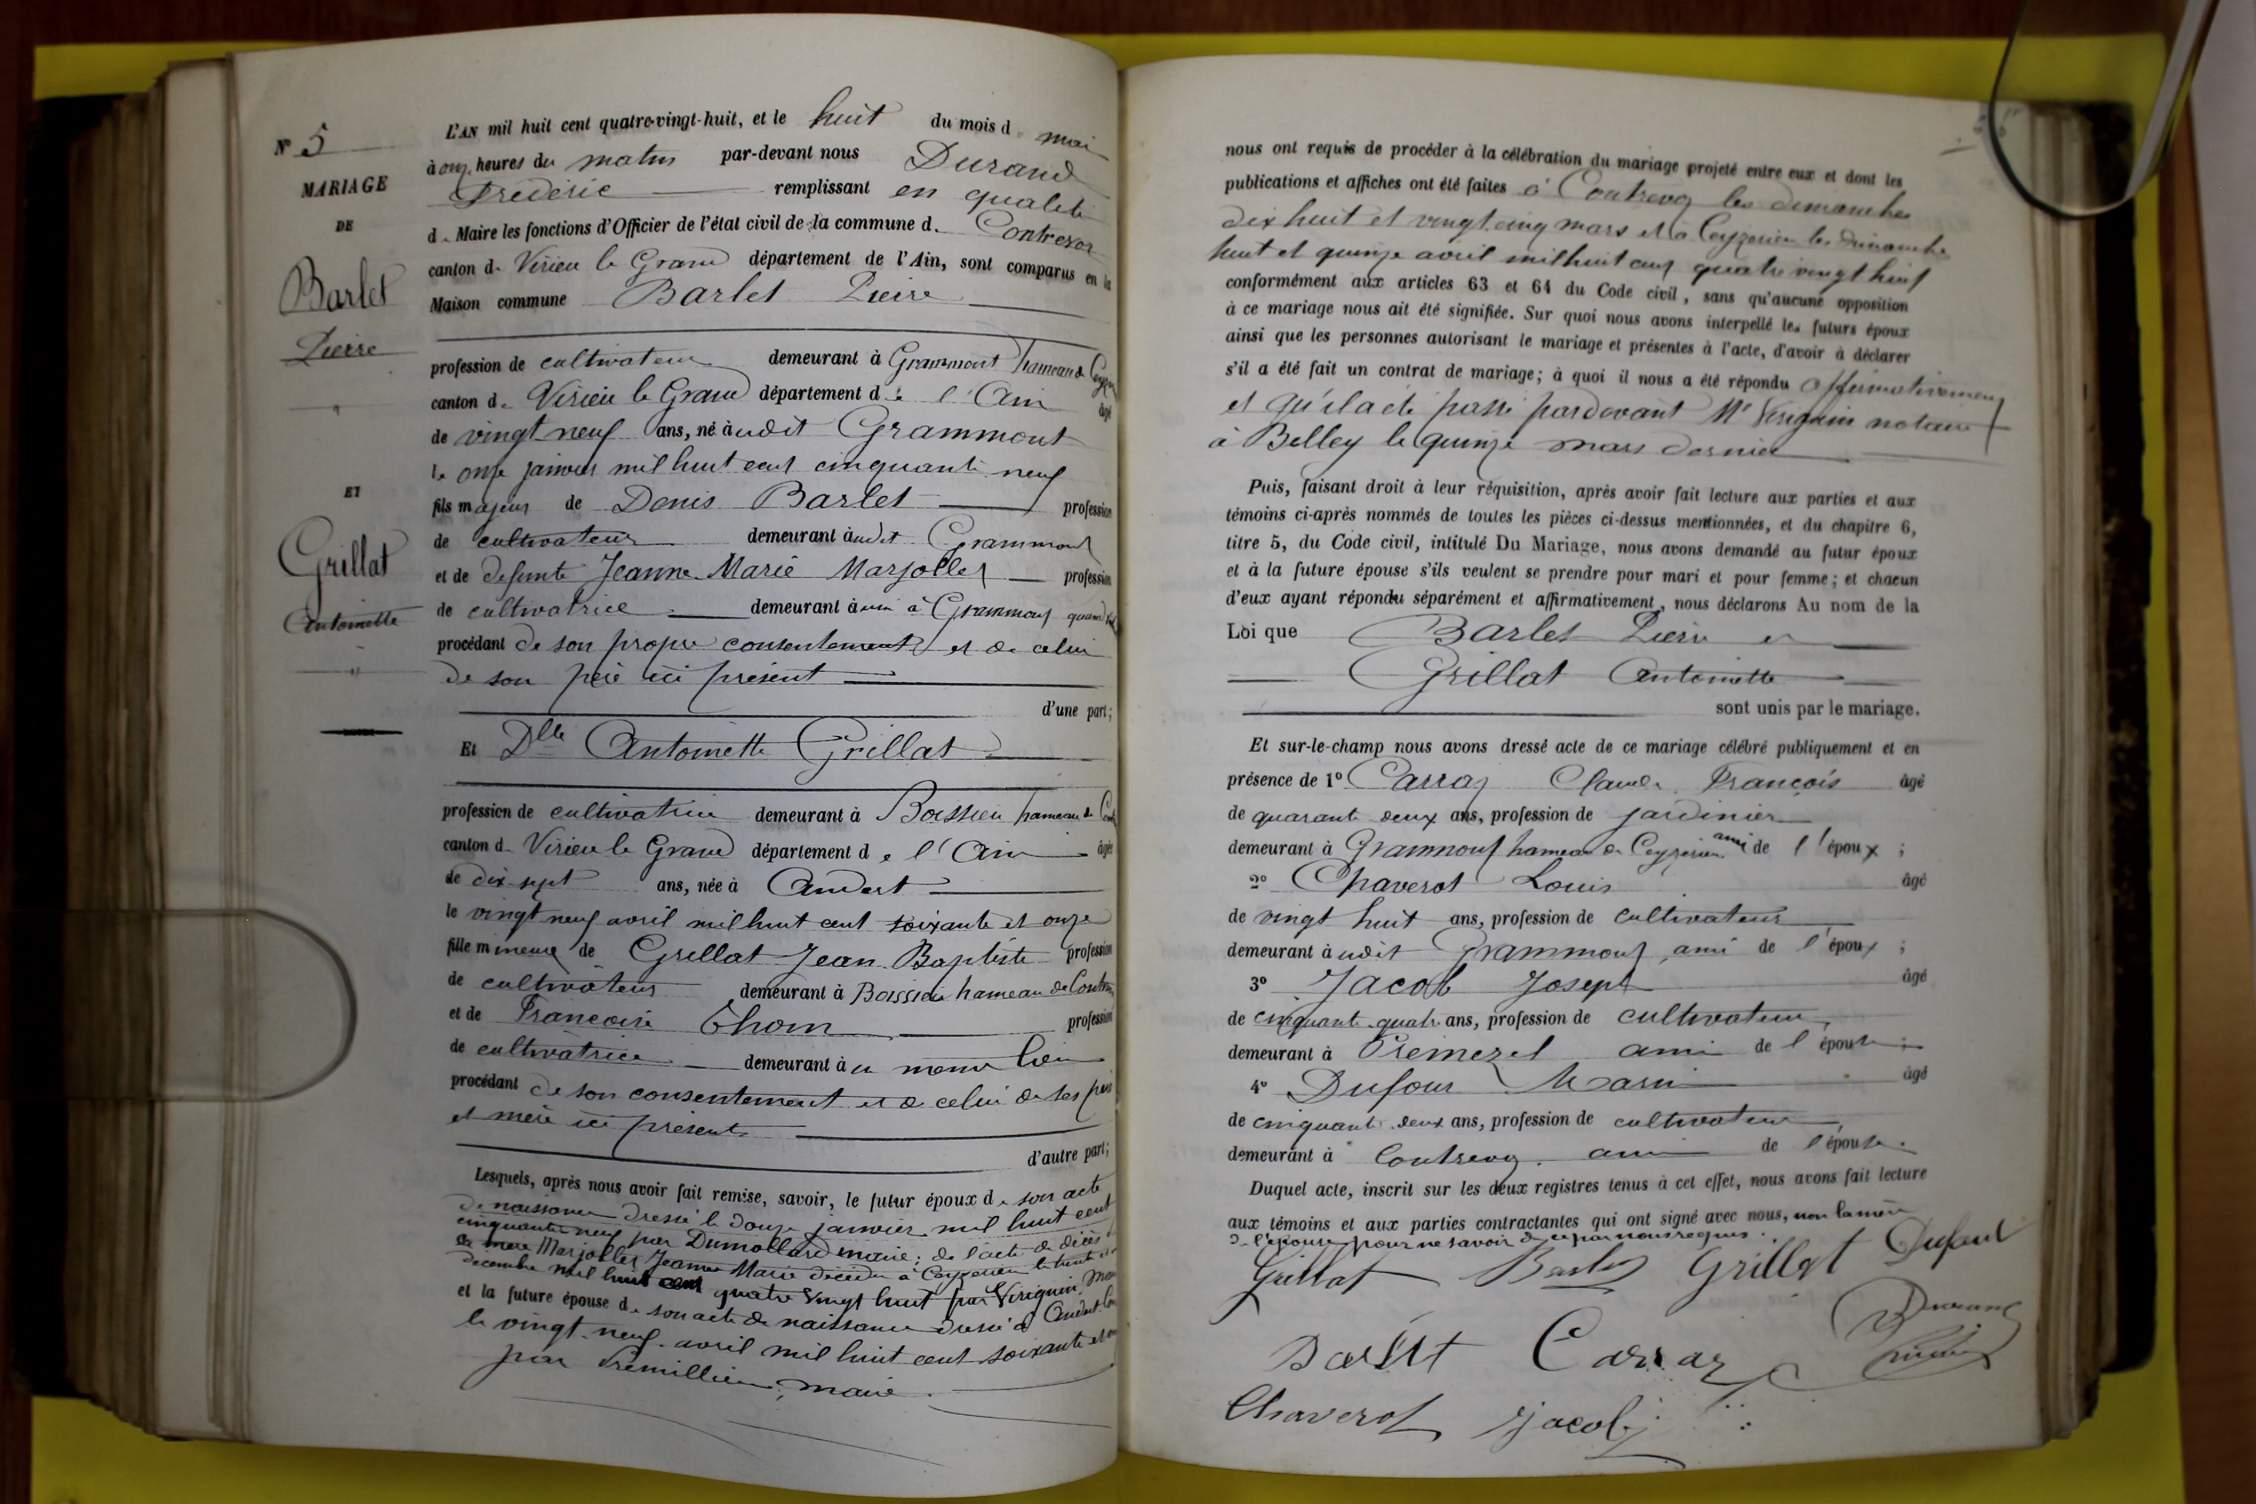 N° 5
MARIAGE
DE
Barlet
Pierre
ET
Grillat
Antoinette
L'AN mil huit cent quatre-vingt-huit, et le huit du mois d. mai
à onz. heures du matin par-devant nous Durand
Frédéric remplissant en qualité
d. Maire les fonctions d'Officier de l'état civil de la commune d. Contrevoz
canton d. Virieu le Grand département de l'Ain, sont comparus en la
Maison commune Barlet Pierre
profession de cultivateur demeurant à Grammont hameau de
canton d. Virieu le Grand département d e l'Ain âgé
de vingt neuf ans, né à udit Grammont
le onze janvier mil huit cent cinquante neuf
fils majeur de Denis Barlet profession
de cultivateur demeurant à udit Grammont
et de defunte Jeanne Marie Marjollet profession
de cultivatrice demeurant à Grammont quand
procédant de son propre consentement et de celui
de son père ici présent
d'une part;
Et Dlle Antoinette Grillat
profession de cultivatrice demeurant à Boissieu hameau de
canton d. Virieu le Grand département d e l'Ain âgée
de dix-sept ans, née à Andert
le vingt neuf avril mil huit cent soixante et onze
fille mineure de Grillat Jean Baptiste profession
de cultivateur demeurant à Boissieu hameau de
et de Françoise Thom profession
de cultivatrice demeurant à u même lieu
procédant de son consentement et de celui de ses père
et mère ici présents
d'autre part;
Lesquels, après nous avoir fait remise, savoir, le futur époux d. son acte
de naissance dressé le douze janvier mil huit cent
cinquante neuf par Dumollard maire; de l'acte de décès de
sa mère Marjollet Jeanne Marie décédée à Ceyzerieu le trente et
décembre mil huit cent quatre vingt huit par Veriguin,
et la future épouse d. son acte de naissance dressé à Andert
le vingt-neuf avril mil huit cent soixante et
par Premillieu, maire.
nous ont requis de procéder à la célébration du mariage projeté entre eux et dont les
publications et affiches ont été faites à Contrevoz les dimanches
dix huit et vingt cinq mars et à Ceyzerieu les dimanches
huit et quinze avril mil huit cent quatre vingt huit
conformément aux articles 63 et 64 du Code civil, sans qu'aucune opposition
à ce mariage nous ait été signifiée. Sur quoi nous avons interpellé les futurs époux
ainsi que les personnes autorisant le mariage et présentes à l'acte, d'avoir à déclarer
s'il a été fait un contrat de mariage; à quoi il nous a été répondu affirmativement
et qu'il a été passé pardevant Me Veriguin notaire
à Belley le quinze mars dernier
Puis, faisant droit à leur réquisition, après avoir fait lecture aux parties et aux
témoins ci-après nommés de toutes les pièces ci-dessus mentionnées, et du chapitre 6,
titre 5, du Code civil, intitulé Du Mariage, nous avons demandé au futur époux
et à la future épouse s'ils veulent se prendre pour mari et pour femme; et chacun
d'eux ayant répondu séparément et affirmativement, nous déclarons Au nom de la
Loi que Barlet Pierre et
Grillat Antoinette
sont unis par le mariage.
Et sur-le-champ nous avons dressé acte de ce mariage célébré publiquement et en
présence de 1° Carraz Claude François âgé
de quarante deux ans, profession de jardinier
demeurant à Grammont hameau de Ceyzerieu ami de l'époux ;
2° Chaverot Louis âgé
de vingt huit ans, profession de cultivateur
demeurant à udit Grammont, ami de l'époux ;
3° Jacob Joseph âgé
de cinquante quatre ans, profession de cultivateur,
demeurant à Premezel ami de l'épouse ;
4° Dufour Marin âgé
de cinquante deux ans, profession de cultivateur,
demeurant à Contrevoz. ami de l'épouse.
Duquel acte, inscrit sur les deux registres tenus à cet effet, nous avons fait lecture
aux témoins et aux parties contractantes qui ont signé avec nous, non la mère
de l'épouse pour ne savoir de ce par nous requis.
Grillat Barlet Grillat Dufour
Barlet Carraz Durand
Chaverot Jacob